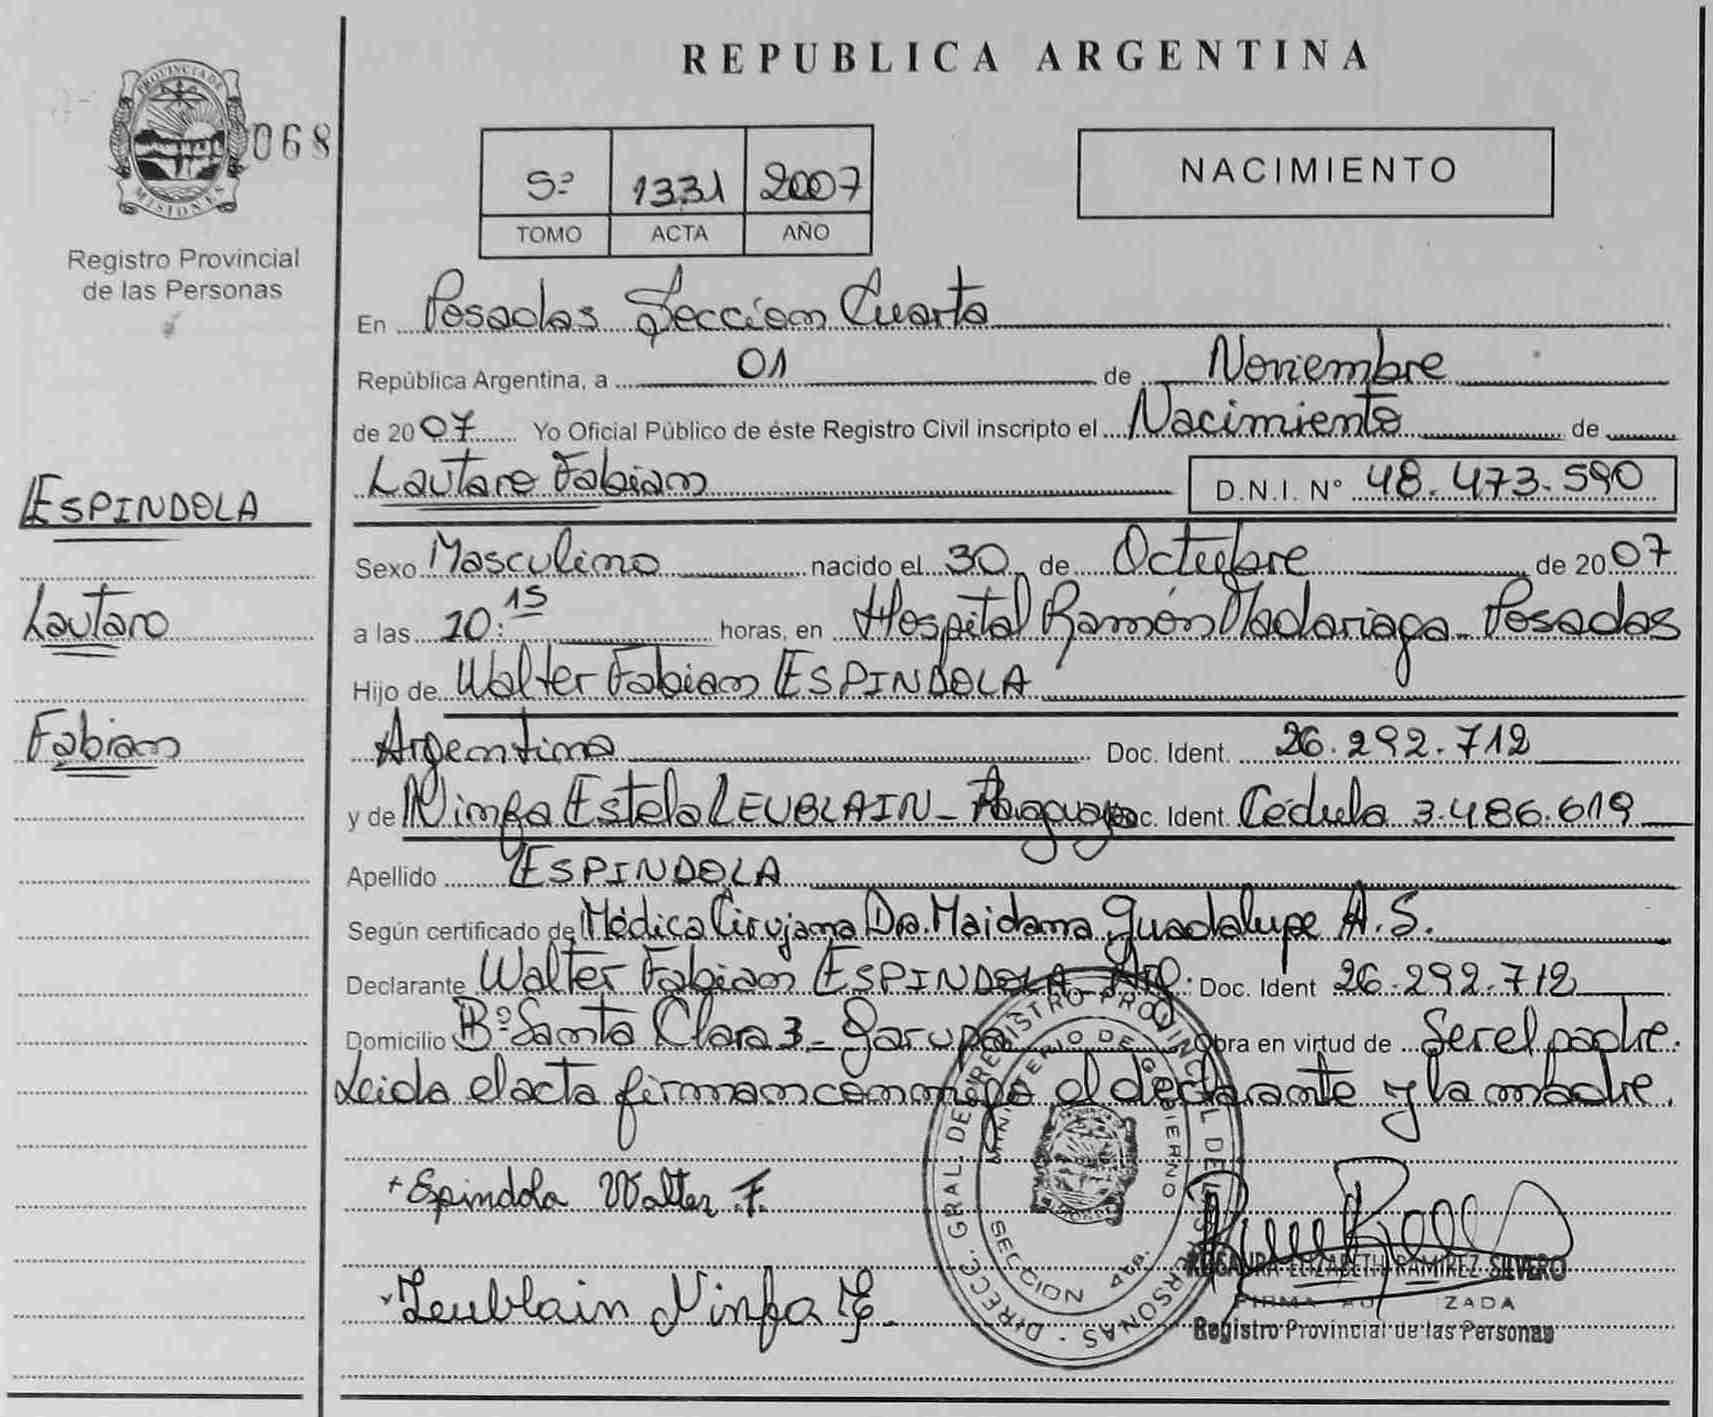 REPUBLICA ARGENTINA
PROVINCIA DE
MISIONES
068
Registro Provincial
de las Personas
5º 1331 2007
TOMO ACTA AÑO
NACIMIENTO
En Posadas Sección Cuarta
República Argentina, a 01 de Noviembre
de 2007 Yo Oficial Público de éste Registro Civil inscripto el Nacimiento de
Lautaro Fabian D.N.I. Nº 48.473.590
ESPINDOLA
Lautaro
Fabian
Sexo Masculino nacido el 30 de Octubre de 2007
a las 10:15 horas, en Hospital Ramón Madariaga - Posadas
Hijo de Walter Fabian ESPINDOLA
Argentina Doc. Ident. 26.292.712
y de Ninfa Estela LEUBLAIN - Paraguaya Doc. Ident. Cédula 3.486.619
Apellido ESPINDOLA
Según certificado de Médica Cirujana Dra. Maidana Guadalupe A.S.
Declarante Walter Fabian ESPINDOLA - Arg. Doc. Ident 26.292.712
Domicilio Bº Santa Clara 3 - Garupa Obra en virtud de Ser el padre.
Leida el acta firman conmigo el declarante y la madre.
+ Espindola Walter F.
Leublain Ninfa E.
DIRECC. GRAL. DE REGISTRO PROVINCIAL DE LAS PERSONAS
MINISTERIO DE GOBIERNO
SECCION 4ta.
ROSAURA ELIZABETH RAMIREZ SILVERO
FIRMA AUTORIZADA
Registro Provincial de las Personas